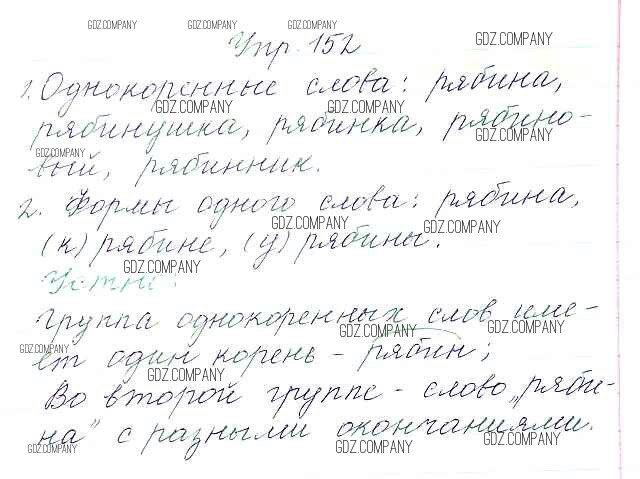 GDZ.COMPANY GDZ.COMPANY GDZ.COMPANY
Упр. 152 GDZ.COMPANY
1. Однокоренные слова: рябина,
GDZ.COMPANY GDZ.COMPANY
рябинушка, рябинка, рябино-
GDZ.COMPANY GDZ.COMPANY
вый, рябинник.
2. Формы одного слова: рябина,
GDZ.COMPANY GDZ.COMPANY
(к) рябине, (у) рябины.
GDZ.COMPANY
Устно.
Группа однокоренных слов име-
GDZ.COMPANY GDZ.COMPANY GDZ.COMPANY
ет один корень - рябин;
GDZ.COMPANY
Во второй группе - слово „ряби-
на" с разными окончаниями.
GDZ.COMPANY GDZ.COMPANY GDZ.COMPANY